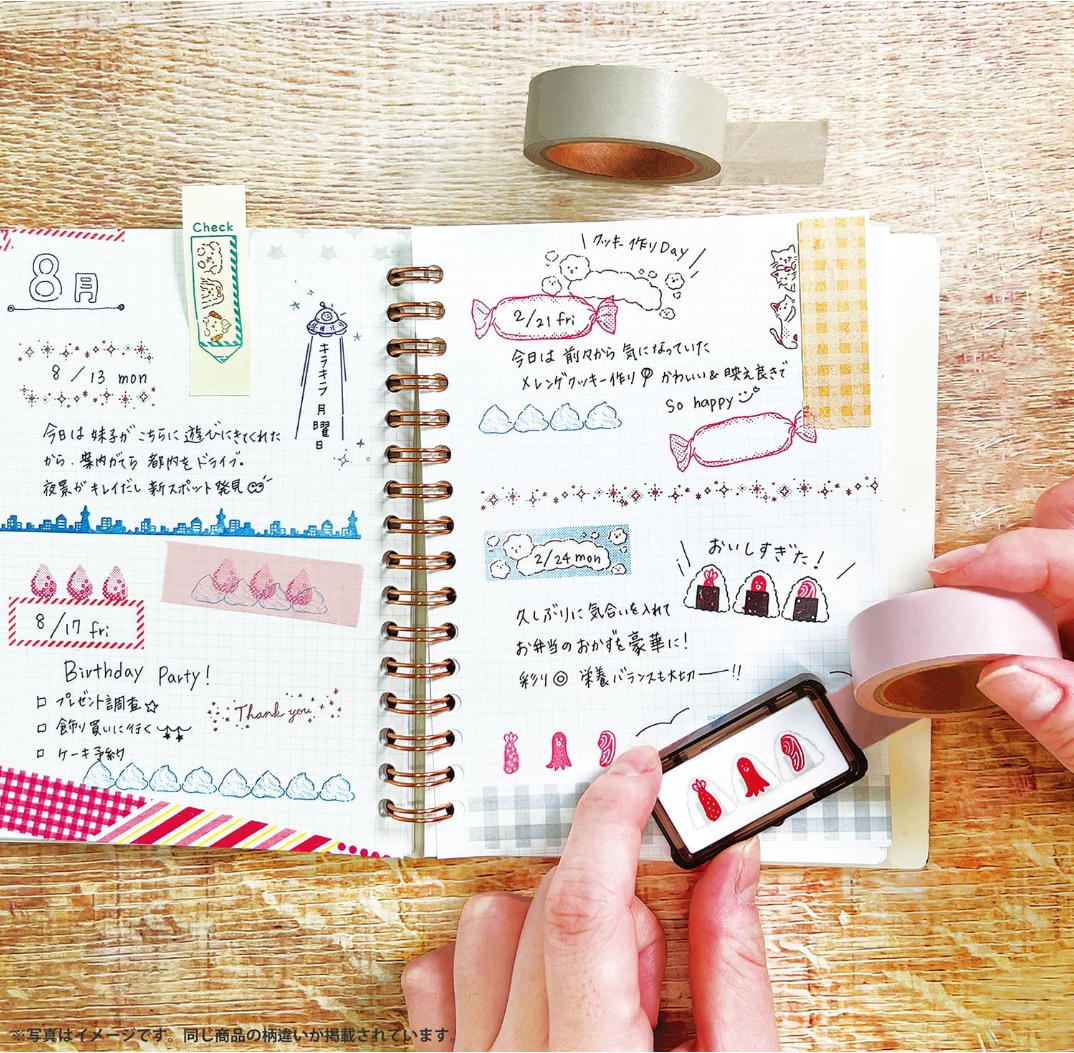 Check
8月
8/13 mon
キラキラ月曜日
今日は妹子がこちらに遊びにきてくれた
から、案内がてら都内をドライブ。
夜景がキレイだし新スポット発見
8/17 fri
Birthday Party!
□ プレゼント調査☆
□ 飾り買いに行く
□ ケーキ予約
Thank you
クッキー作りDay
2/21 fri
今日は前々から気になっていた
メレンゲクッキー作り かわいい&映え良きで
So happy
2/24 mon
おいしすぎた!
久しぶりに気合いを入れて
お弁当のおかずを豪華に!
彩り◎栄養バランスも大切──!!
※写真はイメージです。同じ商品の柄違いが掲載されています。